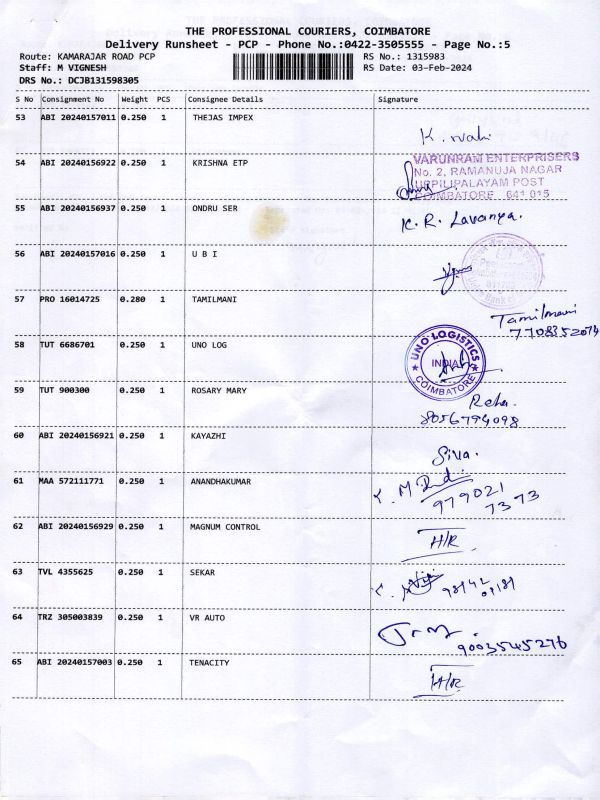 THE PROFESSIONAL COURIERS, COIMBATORE
Delivery Runsheet - PCP - Phone No.:0422-3505555 - Page No.:5
Route: KAMARAJAR ROAD PCP
RS No.: 1315983
Staff: M VIGNESH
RS Date: 03-Feb-2024
DRS No.: DCJB131598305
S No Consignment No Weight PCS Consignee Details Signature
53 ABI 20240157011 0.250 1 THEJAS IMPEX
54 ABI 20240156922 0.250 1 KRISHNA ETP
VARUNRAM ENTERPRISERS
No. 2, RAMANUJA NAGAR
UPPILIPALAYAM POST
COIMBATORE 641 015
55 ABI 20240156937 0.250 1 ONDRU SER
K. R. Lavanya.
56 ABI 20240157016 0.250 1 U B I
57 PRO 16014725 0.280 1 TAMILMANI
Tamilmani
7708352074
58 TUT 6686701 0.250 1 UNO LOG
UNO LOGISTICS
INDIA
COIMBATORE
59 TUT 900300 0.250 1 ROSARY MARY
8056794098
60 ABI 20240156921 0.250 1 KAYAZHI
Siva.
61 MAA 572111771 0.250 1 ANANDHAKUMAR
979021
7373
62 ABI 20240156929 0.250 1 MAGNUM CONTROL
H/R
63 TVL 4355625 0.250 1 SEKAR
64 TRZ 305003839 0.250 1 VR AUTO
9003545276
65 ABI 20240157003 0.250 1 TENACITY
H/R